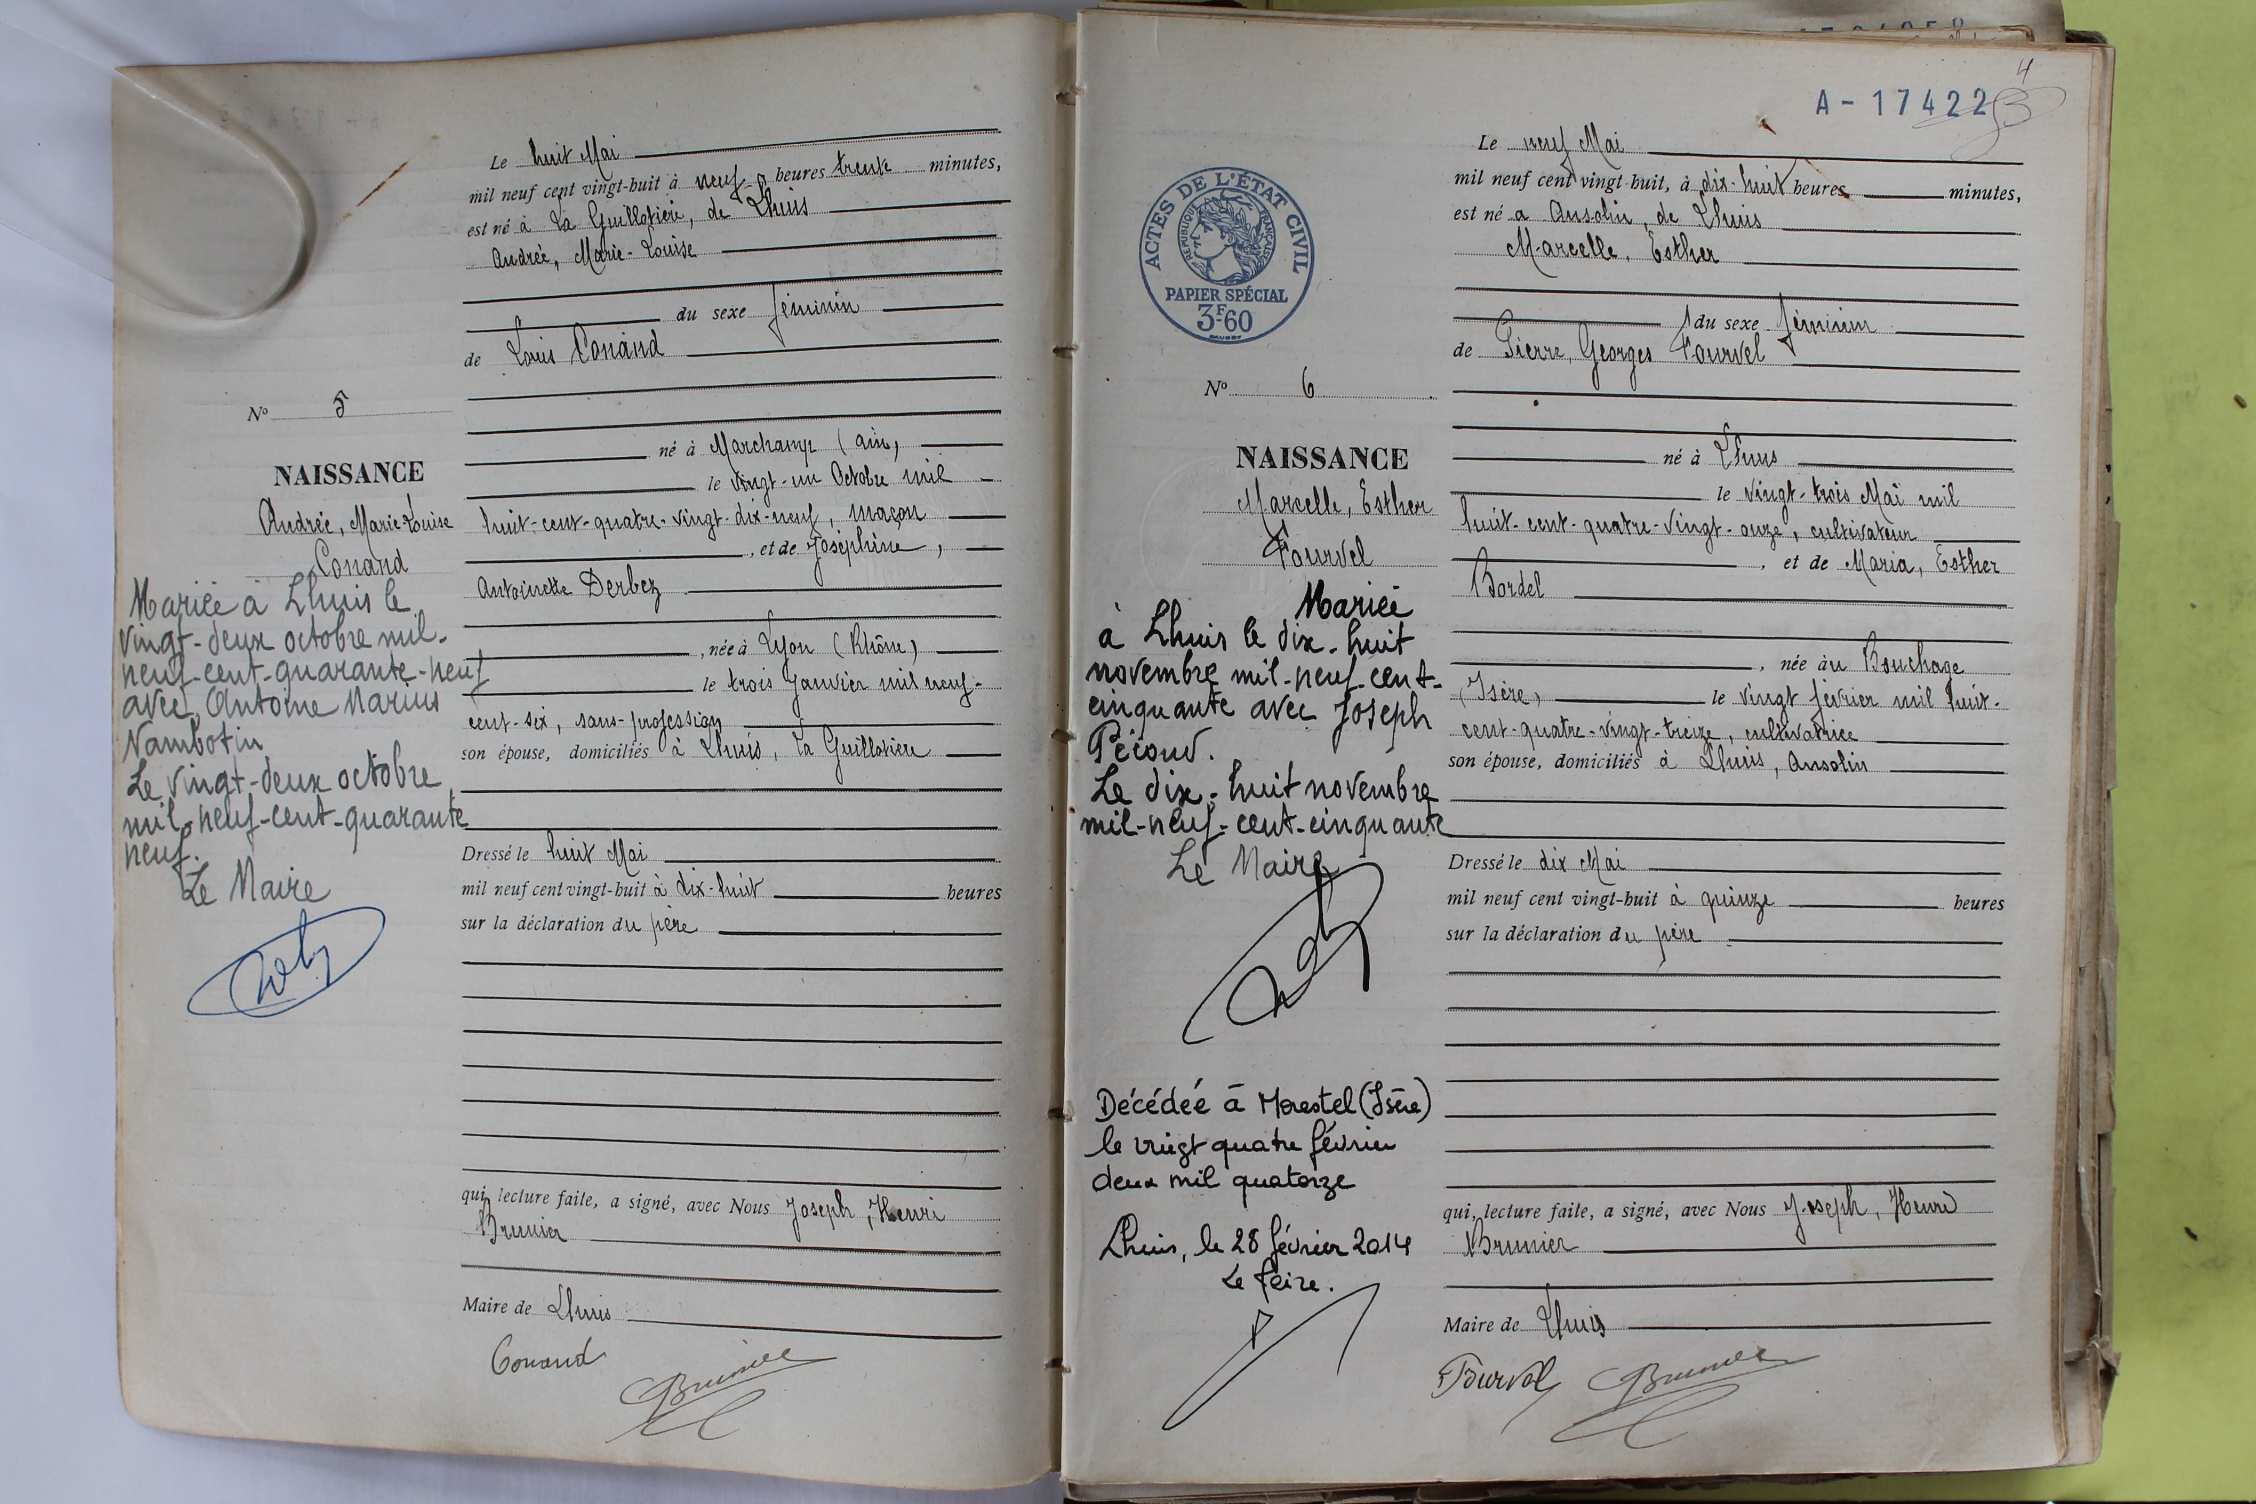 Le huit Mai
mil neuf cent vingt-huit à neuf heures trente minutes,
est né à La Guillotière, de Lhuis
Andrée, Marie-Louise
du sexe féminin
de Louis Conand
N° 5
né à Marchamp (Ain)
NAISSANCE
le vingt-un Octobre mil
Andrée, Marie-Louise
huit-cent-quatre-vingt-dix-neuf, maçon
Conand
, et de Joséphine,
Antoinette Derbez
, née à Lyon (Rhône)
le trois Janvier mil neuf-
cent-six, sans-profession
son épouse, domiciliés à Lhuis, La Guillotière
Mariée à Lhuis le
vingt-deux octobre mil-
neuf-cent-quarante-neuf
avec Antoine Marius
Nambotin
Le vingt-deux octobre
mil-neuf-cent-quarante
neuf.
Le Maire
Dressé le huit Mai
mil neuf cent vingt-huit à dix-huit heures
sur la déclaration du père
qui, lecture faite, a signé, avec Nous Joseph, Henri
Brunier
Maire de Lhuis
Conand
Brunier
4
A-17422
Le neuf Mai
mil neuf cent vingt-huit, à dix-huit heures minutes,
est né à Ansolin, de Lhuis
Marcelle, Esther
du sexe féminin
de Pierre, Georges Fourvel
ACTES DE L'ÉTAT CIVIL
RÉPUBLIQUE FRANÇAISE
PAPIER SPÉCIAL
3F60
N° 6
né à Lhuis
NAISSANCE
le vingt-trois Mai mil
Marcelle, Esther
huit-cent-quatre-vingt-onze, cultivateur
Fourvel
, et de Maria, Esther
Bordel
, née au Bouchage
(Isère) le vingt février mil huit-
cent-quatre-vingt-treize, cultivatrice
son épouse, domiciliés à Lhuis, Ansolin
Mariée
à Lhuis le dix-huit
novembre mil-neuf-cent-
cinquante avec Joseph
Pécoud.
Le dix-huit novembre
mil-neuf-cent-cinquante
Le Maire
Dressé le dix Mai
mil neuf cent vingt-huit à quinze heures
sur la déclaration du père
Décédée à Morestel (Isère)
le vingt quatre février
deux mil quatorze
Lhuis, le 28 février 2014
Le Maire.
qui, lecture faite, a signé, avec Nous Joseph, Henri
Brunier
Maire de Lhuis
Fourvel
Brunier